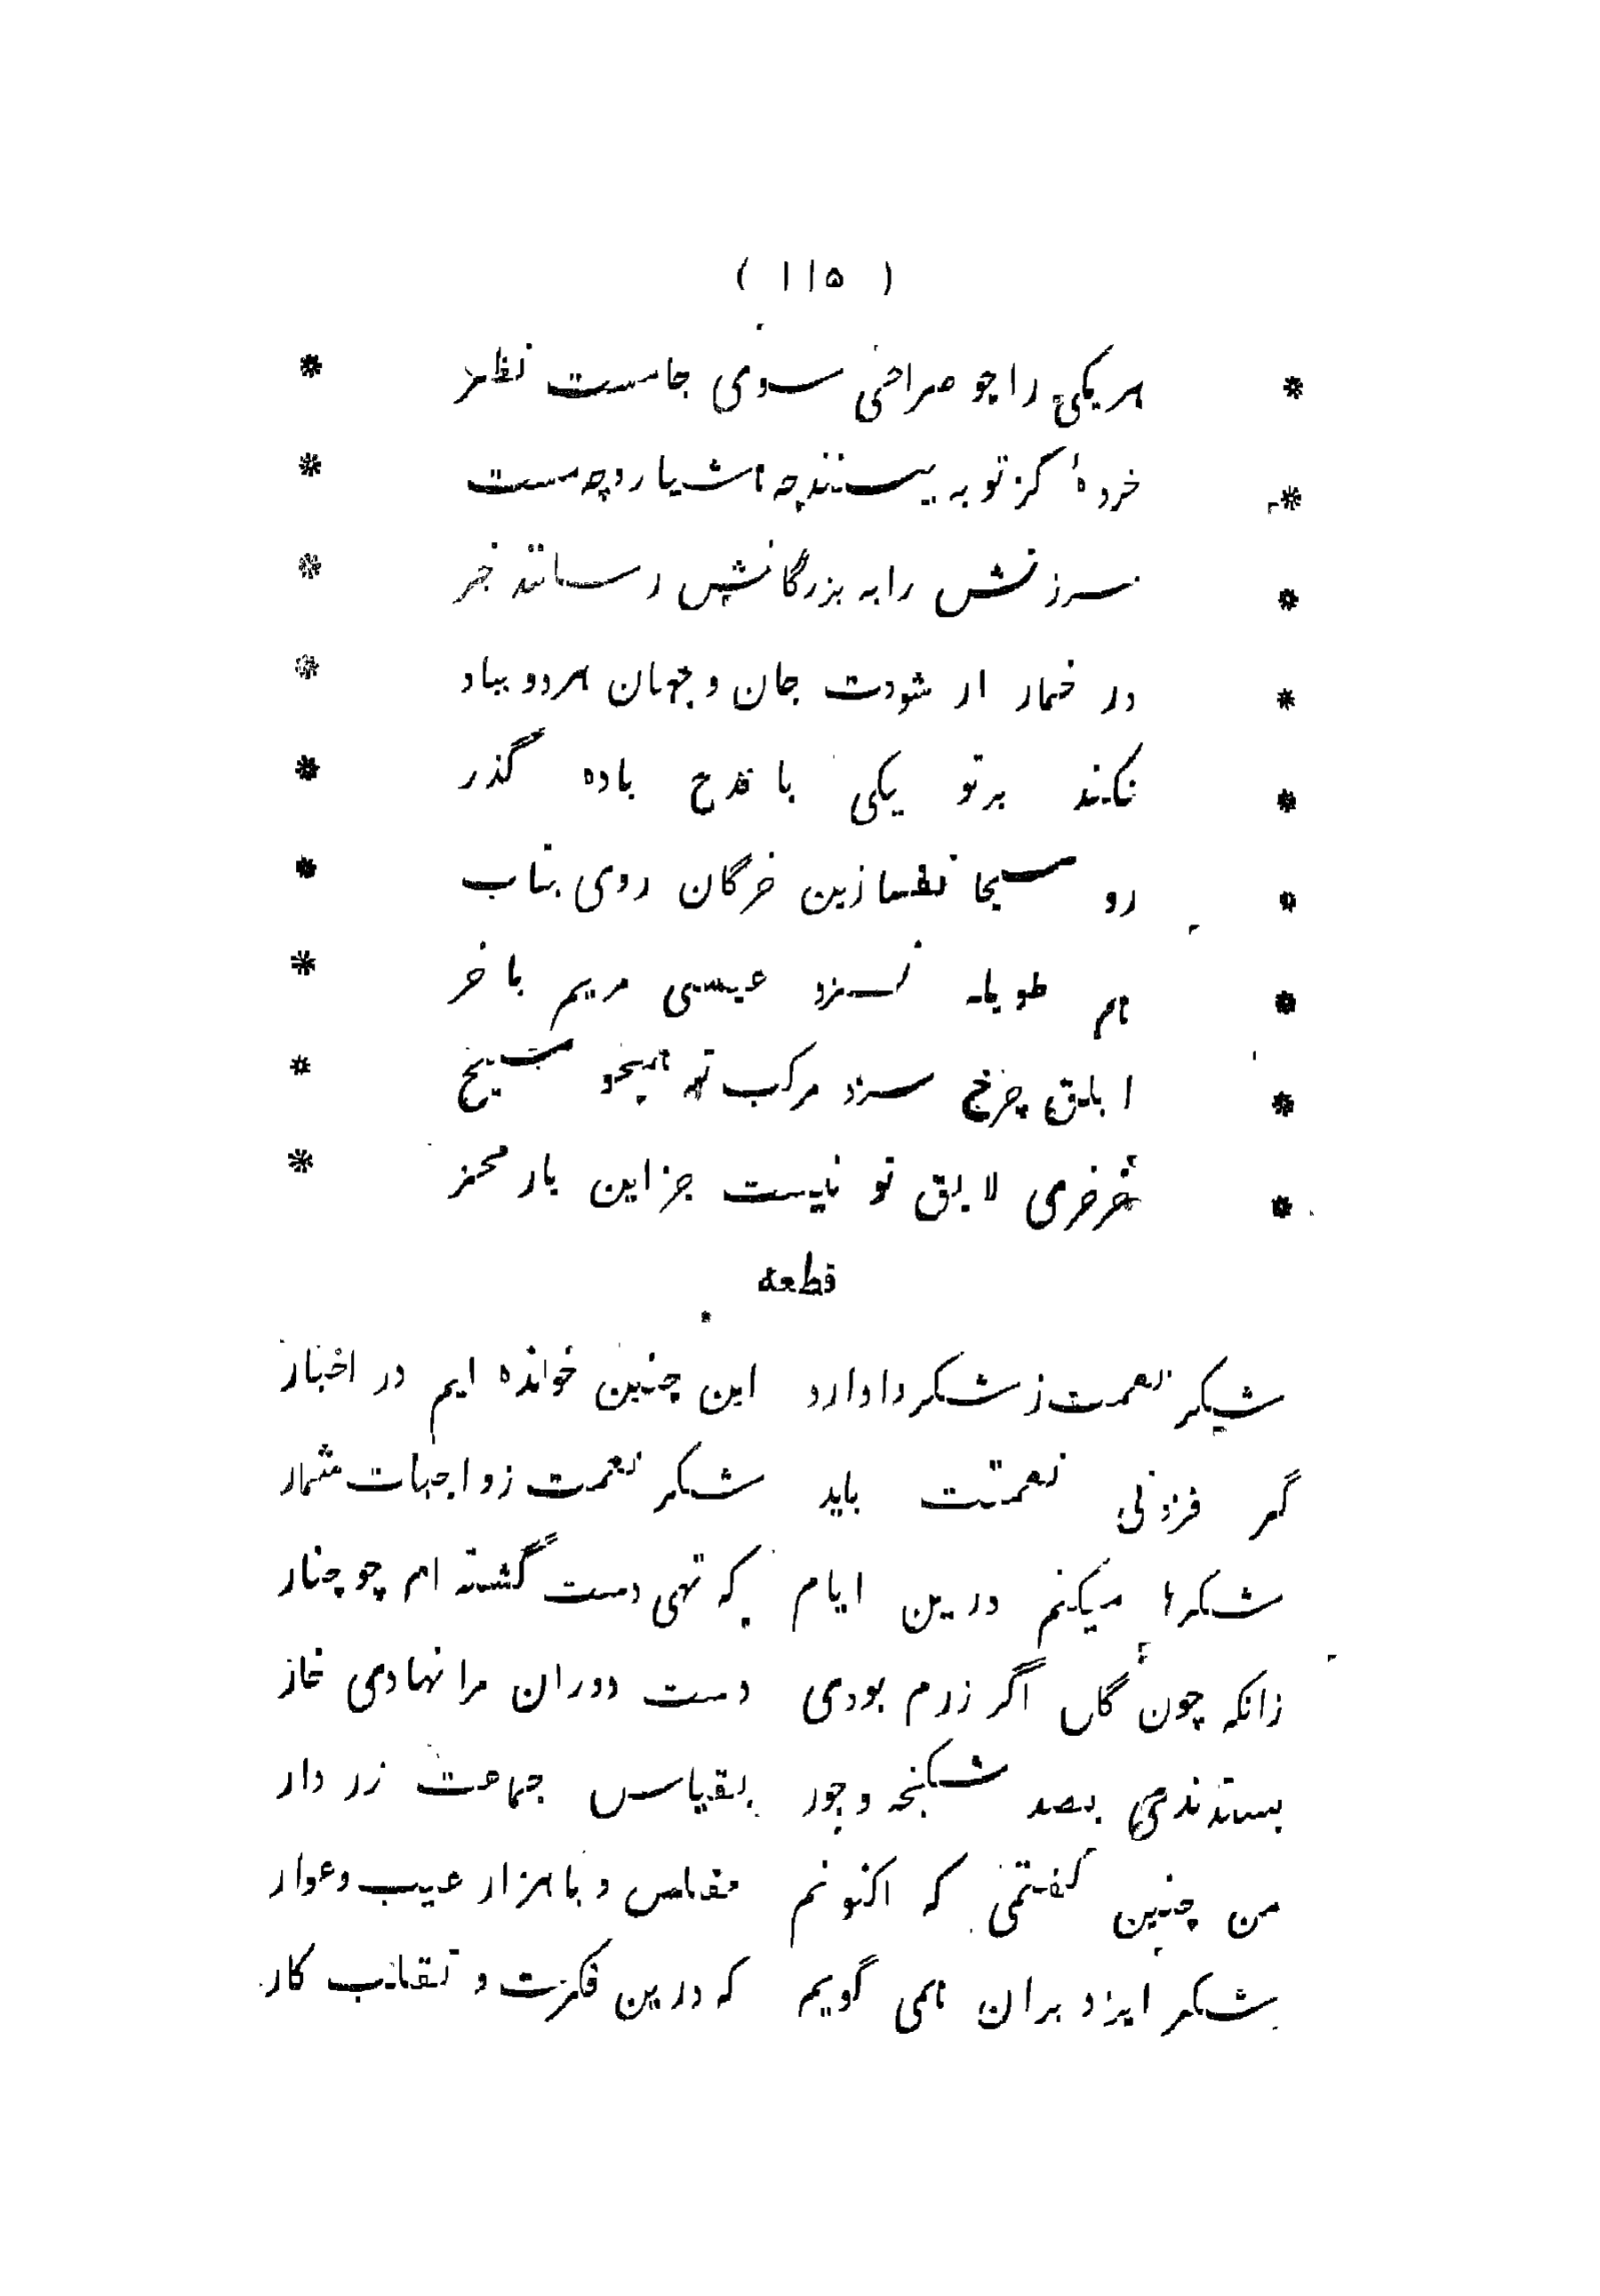 ( ۱۱۵ )
* هر یکی را چو صراحی سوی جامست نظر *
* خردهٔ کز تو به بینند چه هشیار و چه مست *
* سرزنش را به بزرگانش رسانند خبر *
* در خمار ار شودت جان و جهان هر دو بباد *
* نکند بر تو یکی با قدح باده گذر *
* رو مسیحا نفسا زین خرگان روی بتاب *
* هم طویله نسزد عیسی مریم با خر *
* ابلق چرخ سزد مرکب تو همچو مسیح *
* خر خری لایق تو نیست جز این بار مخر *
قطعه
شکر نعمت ز شکر دادارد این چنین خوانده ایم در اخبار
گر فزونی نعمتت باید شکر نعمت ز واجبات شمار
شکرها میکنم درین ایام که تهی دست گشته ام چو چنار
زانکه چون گل اگر زرم بودی دست دوران مرا نهادی خار
بستدندی بصد شکنجه و جور بقیاس جماعت زر دار
من چنین گفتمی که اکنونم مفلس و با هزار عیب و عوار
شکر ایزد بران همی گویم که درین فکرت و تقلب کار